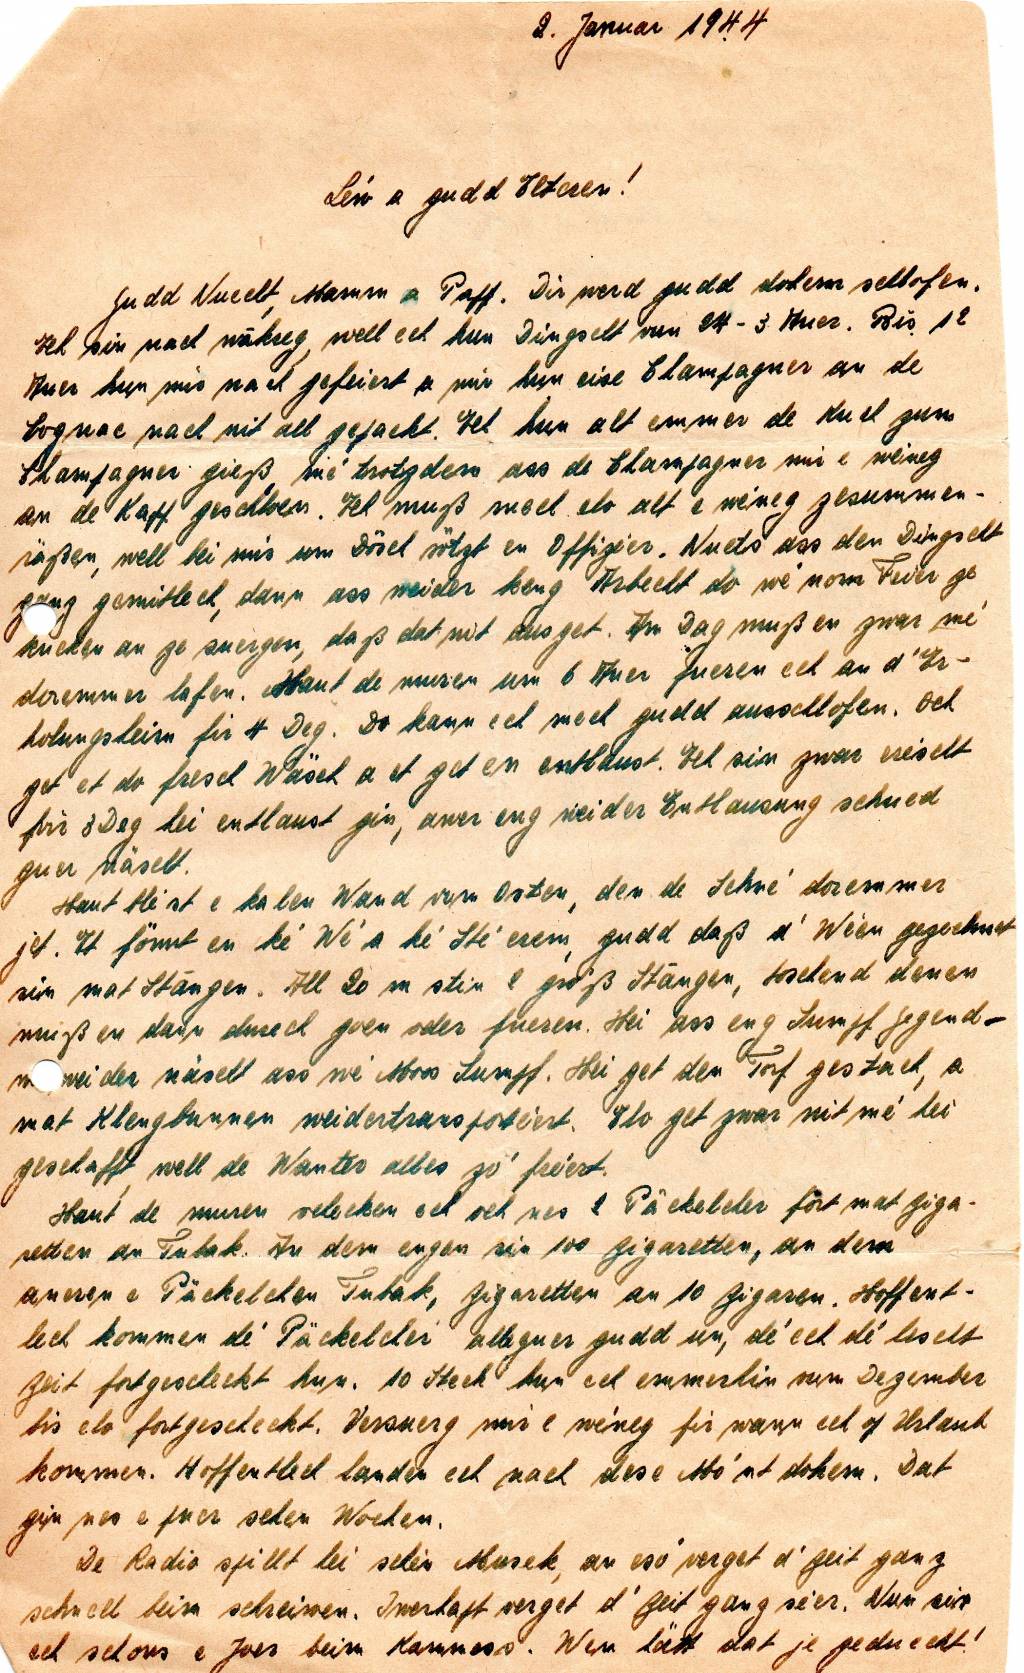 2. Januar 1944
Léiv a gudd Elteren!
Gudd Nuecht, Mamm a Papp. Dir werd gudd dohem schlofen.
Ech sin nach wåkreg, well ech hun Déngscht vun 24-3 Auer. Bis 12
Auer hun mir nach gefeiert a mir hun eise Champagner an de
Cognac nach nit all gepackt. Ech hun alt emmer de Kuch zum
Champagner giess, mé trotzdem ass de Champagner mir e wéineg
an de Kapp geschloen. Ech muß mech elo alt e wéineg zesummen-
räßen, well bei mir um Dösch sëtzt en Offizéier. Nuets ass den Déngscht
ganz gemitlech, dann ass weider keng Arbecht do wé nom Feier ze
kucken an ze suergen, daß dat nit ausget. Am Dag muß en zwar mé
doremmer lafen. Haut de muren um 6 Auer fueren ech an d'Er-
holungsheim fir 4 Deg. Do kann ech mech gudd ausschlofen. Och
get et do fresch Wäsch a et get en entlaust. Ech sin zwar eréischt
fir 8 Deg hei entlaust gin, awer eng weider Entlausung schued
guer näischt.
Haut bléist e kalen Wand vum Osten, den de Schné doremmer
jet. Et fënnt en ké Wé a ké Sté erem, gudd daß d'Wéen gezechent
sin mat Stangen. All 20 m stin 2 grôß Stangen, tëschend denen
muß en dann duerch goen oder fueren. Hei ass eng Sumpf Gegend -
weider näischt ass wé Moos Sumpf. Hei get den Torf gestach, a
mat Klengbunnen weidertransportéiert. Elo get zwar nit mé hei
geschafft well de Wanter alles zó fréiert.
Haut de muren schecken ech och nes 2 Päckelcher fort mat Ziga-
retten an Tubak. An dem engen sin 100 Zigaretten, an dem
aneren e Päckelchen Tubak, Zigaretten an 10 Zigaren. Hoffent-
lech kommen dé Päckelcher alleguer gudd un, dé ech dé lescht
Zeit fortgescheckt hun. 10 Steck hun ech emmerhin vum Dezember
bis elo fortgescheckt. Versuerg mir e wéineg fir wann ech op Urlaub
kommen. Hoffentlech landen ech nach dese Mó'nt dohem. Dat
gin nes e puer schen Wochen.
De Radio spillt hei schéin Musek, an esó verget d'Zeit ganz
schnell beim schreiwen. Iwerhapt verget d'Zeit ganz séier. Nun sin
ech schons e Joer beim Kommess. Wen hätt dat je geduecht!